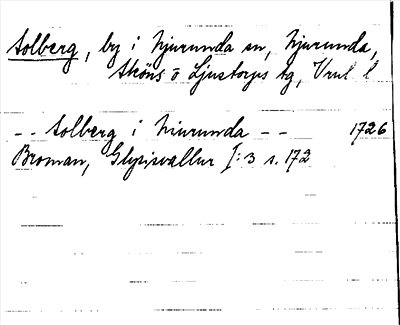 Solberg, by i Njurunda sn, Njurunda,
Sköns o Ljustorps tg, Vrnl l
-- Solberg i Niurunda -- 1726
Broman, Glysisvallur I:3 s. 172